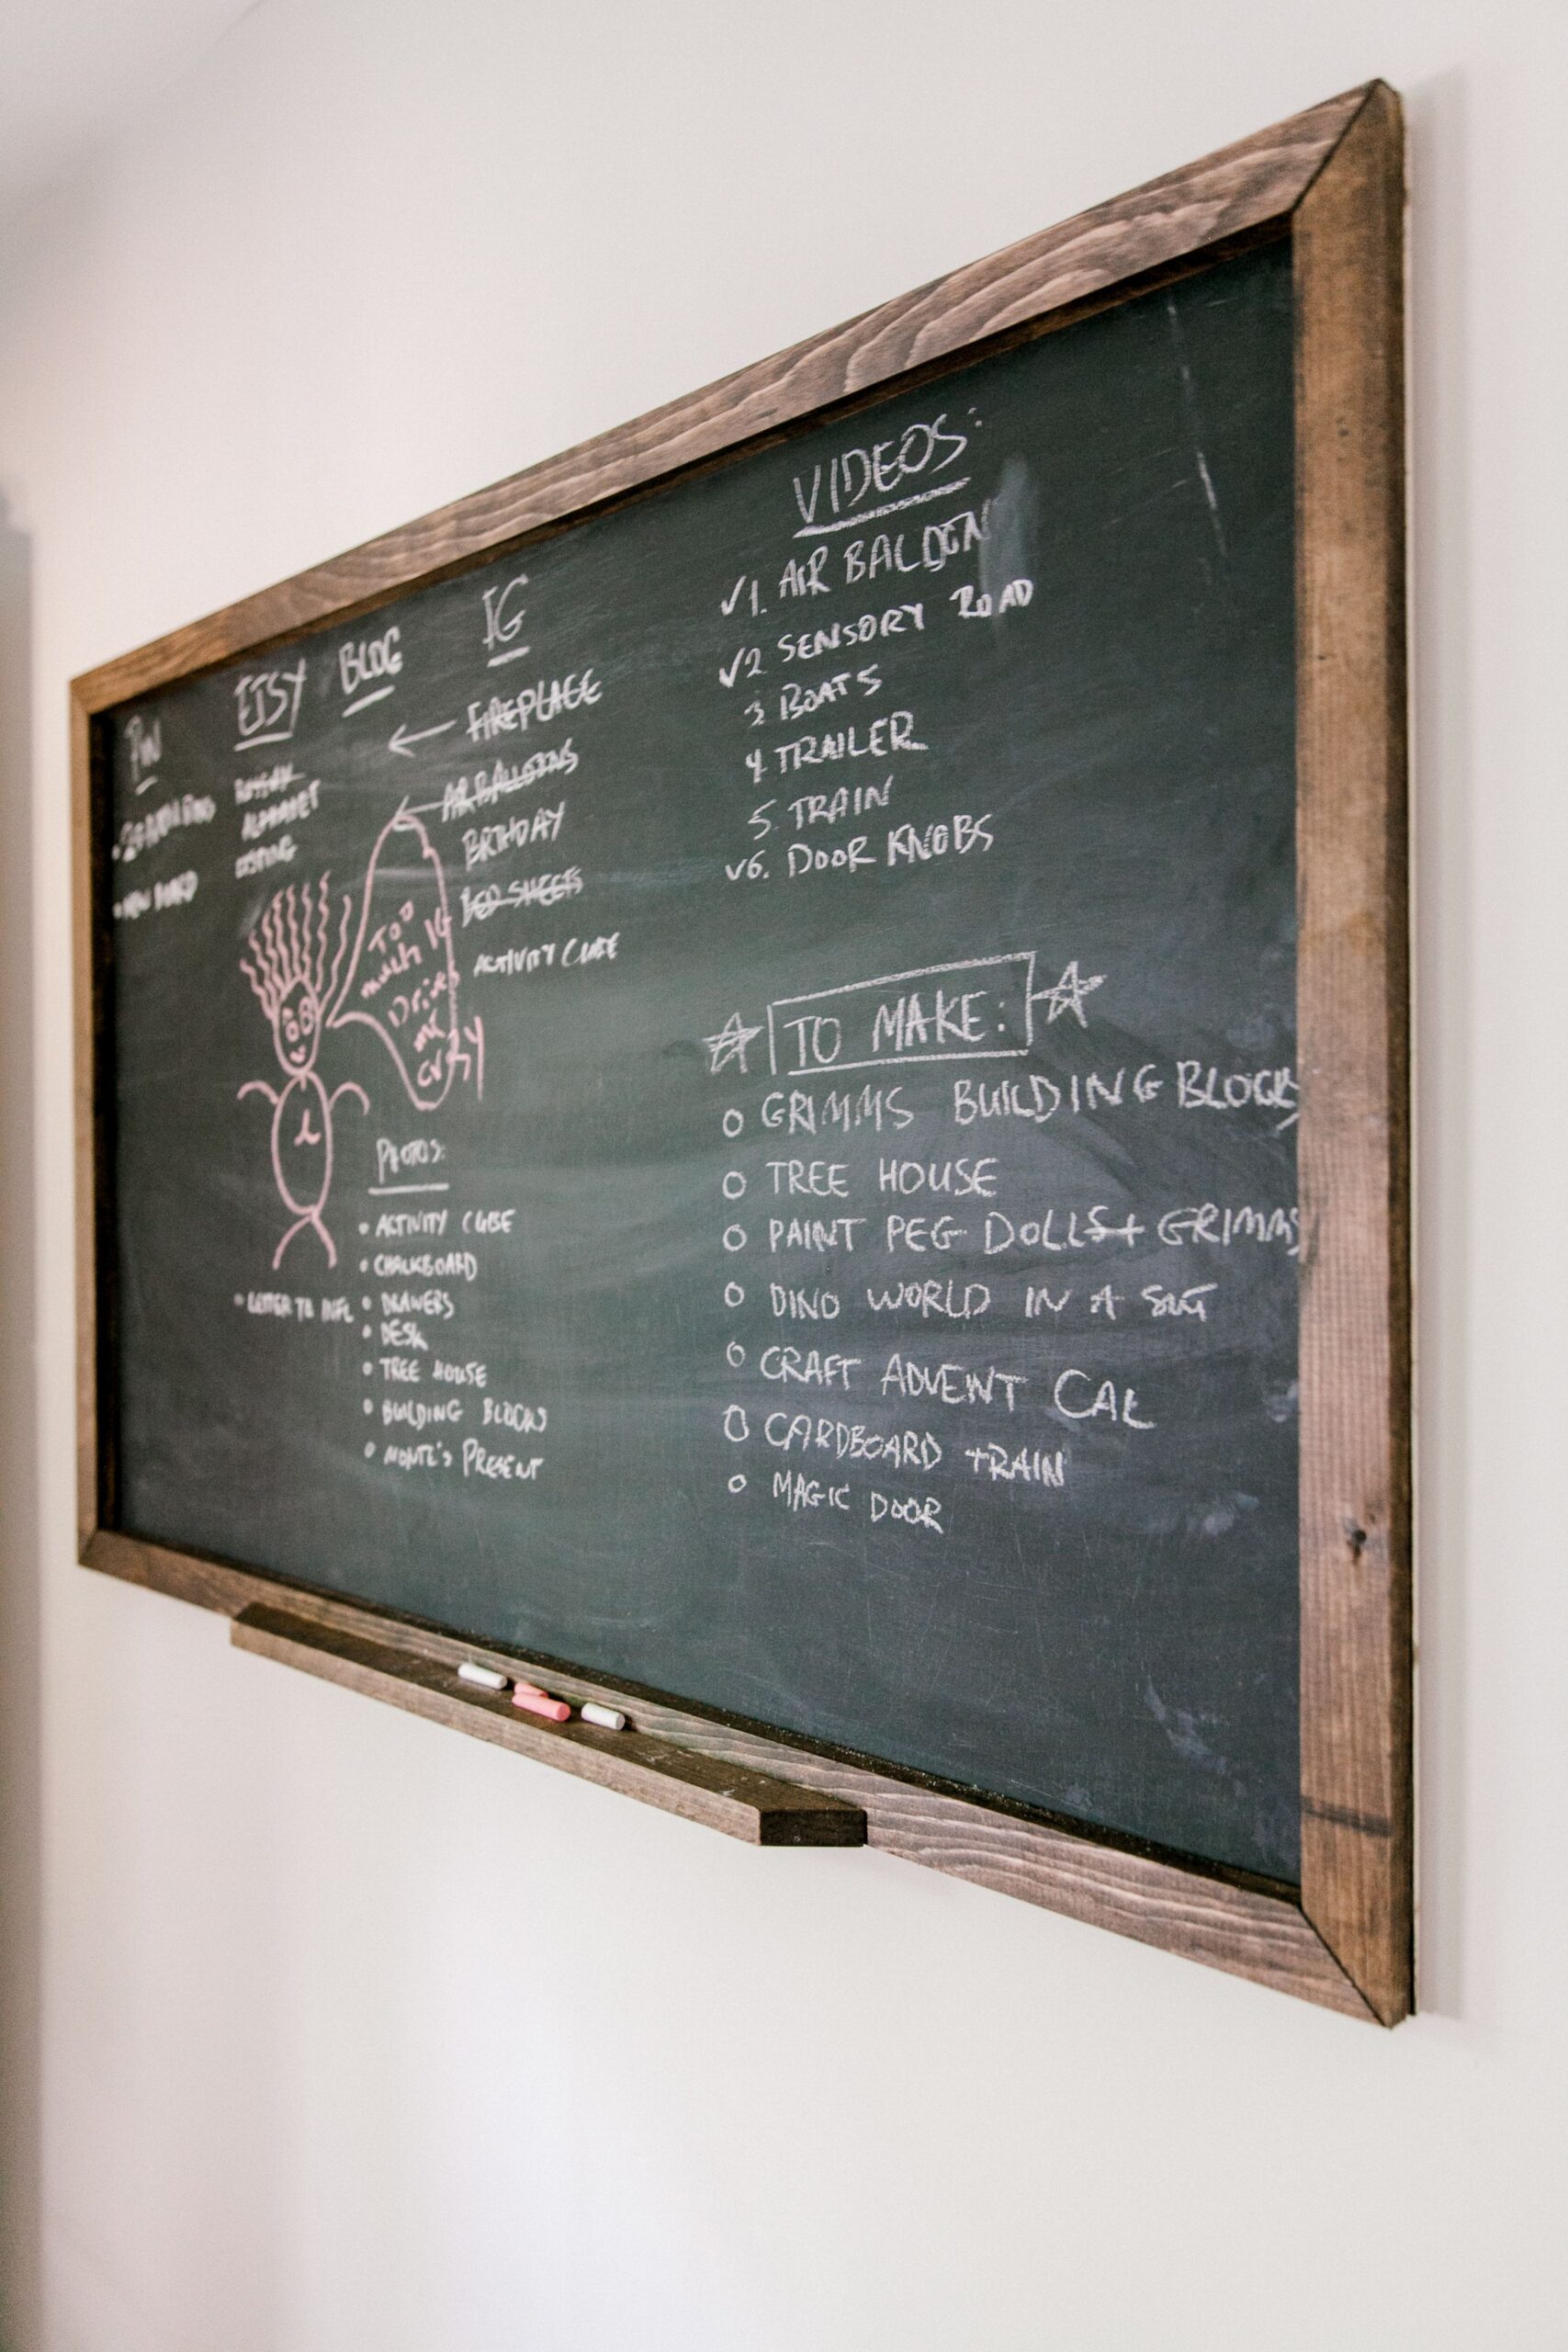 PIN
NEW BOARD
ETSY
ALPHABET
LISTING
BLOG
IG
FIREPLACE
AIR BALLOONS
BIRTHDAY
BED SHEETS
ACTIVITY CUBE
TOO
much IG
Drives
me
crazy
• LETTER TO
PHOTOS:
• ACTIVITY CUBE
• CHALKBOARD
• DRAWERS
• DESK
• TREE HOUSE
• BUILDING BLOCKS
• MONTE'S PRESENT
VIDEOS:
✓1. AIR BALOON
✓2 SENSORY ROAD
3 BOATS
4 TRAILER
5. TRAIN
✓6. DOOR KNOBS
☆ TO MAKE: ☆
○ GRIMMS BUILDING BLOCKS
○ TREE HOUSE
○ PAINT PEG DOLLS + GRIMMS
○ DINO WORLD IN A
○ CRAFT ADVENT CAL
○ CARDBOARD TRAIN
○ MAGIC DOOR